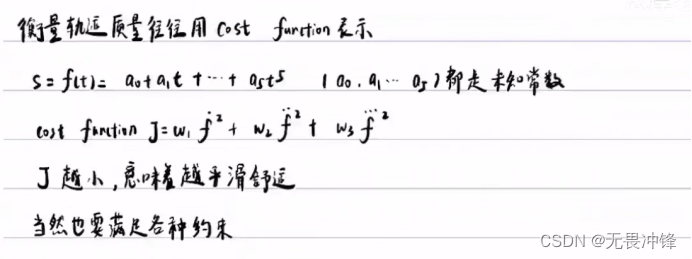 衡量轨迹质量往往用 cost function 表示
S = f(t) = a₀+a₁t + ⋯ + a₅t⁵ (a₀, a₁ ⋯ a₅) 都是未知常数
cost function J = w₁ḟ² + w₂f̈² + w₃f⃛²
J 越小, 意味着越平滑舒适
当然也要满足各种约束
CSDN @无畏冲锋